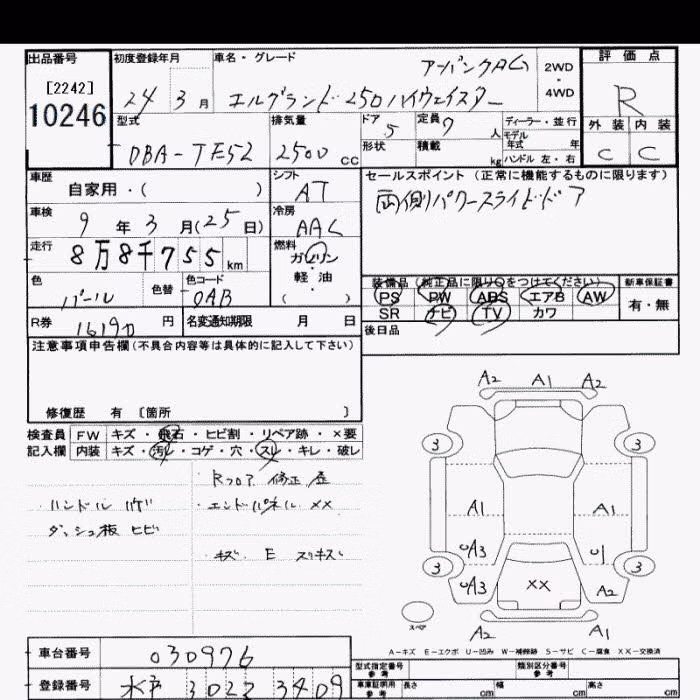 出品番号 初度登録年月 車名・グレード 評価点
[2242] アーバンクロム 2WD・4WD
10246 24 3月 エルグランド 250ハイウェイスター R
型式 排気量 ドア 5 定員 7人 ディーラー・並行 外装 内装
形状 積載 kg モデル年式 年 ハンドル 左・右
DBA-TE52 2500cc C C
車歴 シフト セールスポイント(正常に機能するものに限ります)
自家用・( ) AT 両側パワースライドドア
車検 冷房
9年3月(25日) AAC
走行 燃料
8万8千755km ガソリン・軽油
( )
色 色替 色コード 装備品(純正品に限り○をつけてください) 新車保証書
パール QAB PS PW ABS エアB AW 有・無
SR ナビ TV カワ
R券 16190円 名変通知期限 月 日 後日品
注意事項申告欄(不具合内容等は具体的に記入して下さい)
修復歴 有 〔箇所 〕
検査員 FW キズ・飛石・ヒビ割・リペア跡・×要
記入欄 内装 キズ・汚レ・コゲ・穴・スレ・キレ・破レ
Rフロア 修正歴
ハンドル ハゲ エンドパネル ××
ダッシュ板 ヒビ
キズ E スリキズ
A2 A1 A2
3 3
A1 A1
UA3 U1
3 3
UA3 ×× A2
スペア
A2 A1
A-キズ E-エクボ U-凹み W-補修跡 S-サビ C-腐食 XX-交換済
車台番号 030976
型式指定番号 参考 類別区分番号 参考
登録番号 水戸 302 3409
車庫証明用 参考 長さ cm 幅 cm 高さ cm